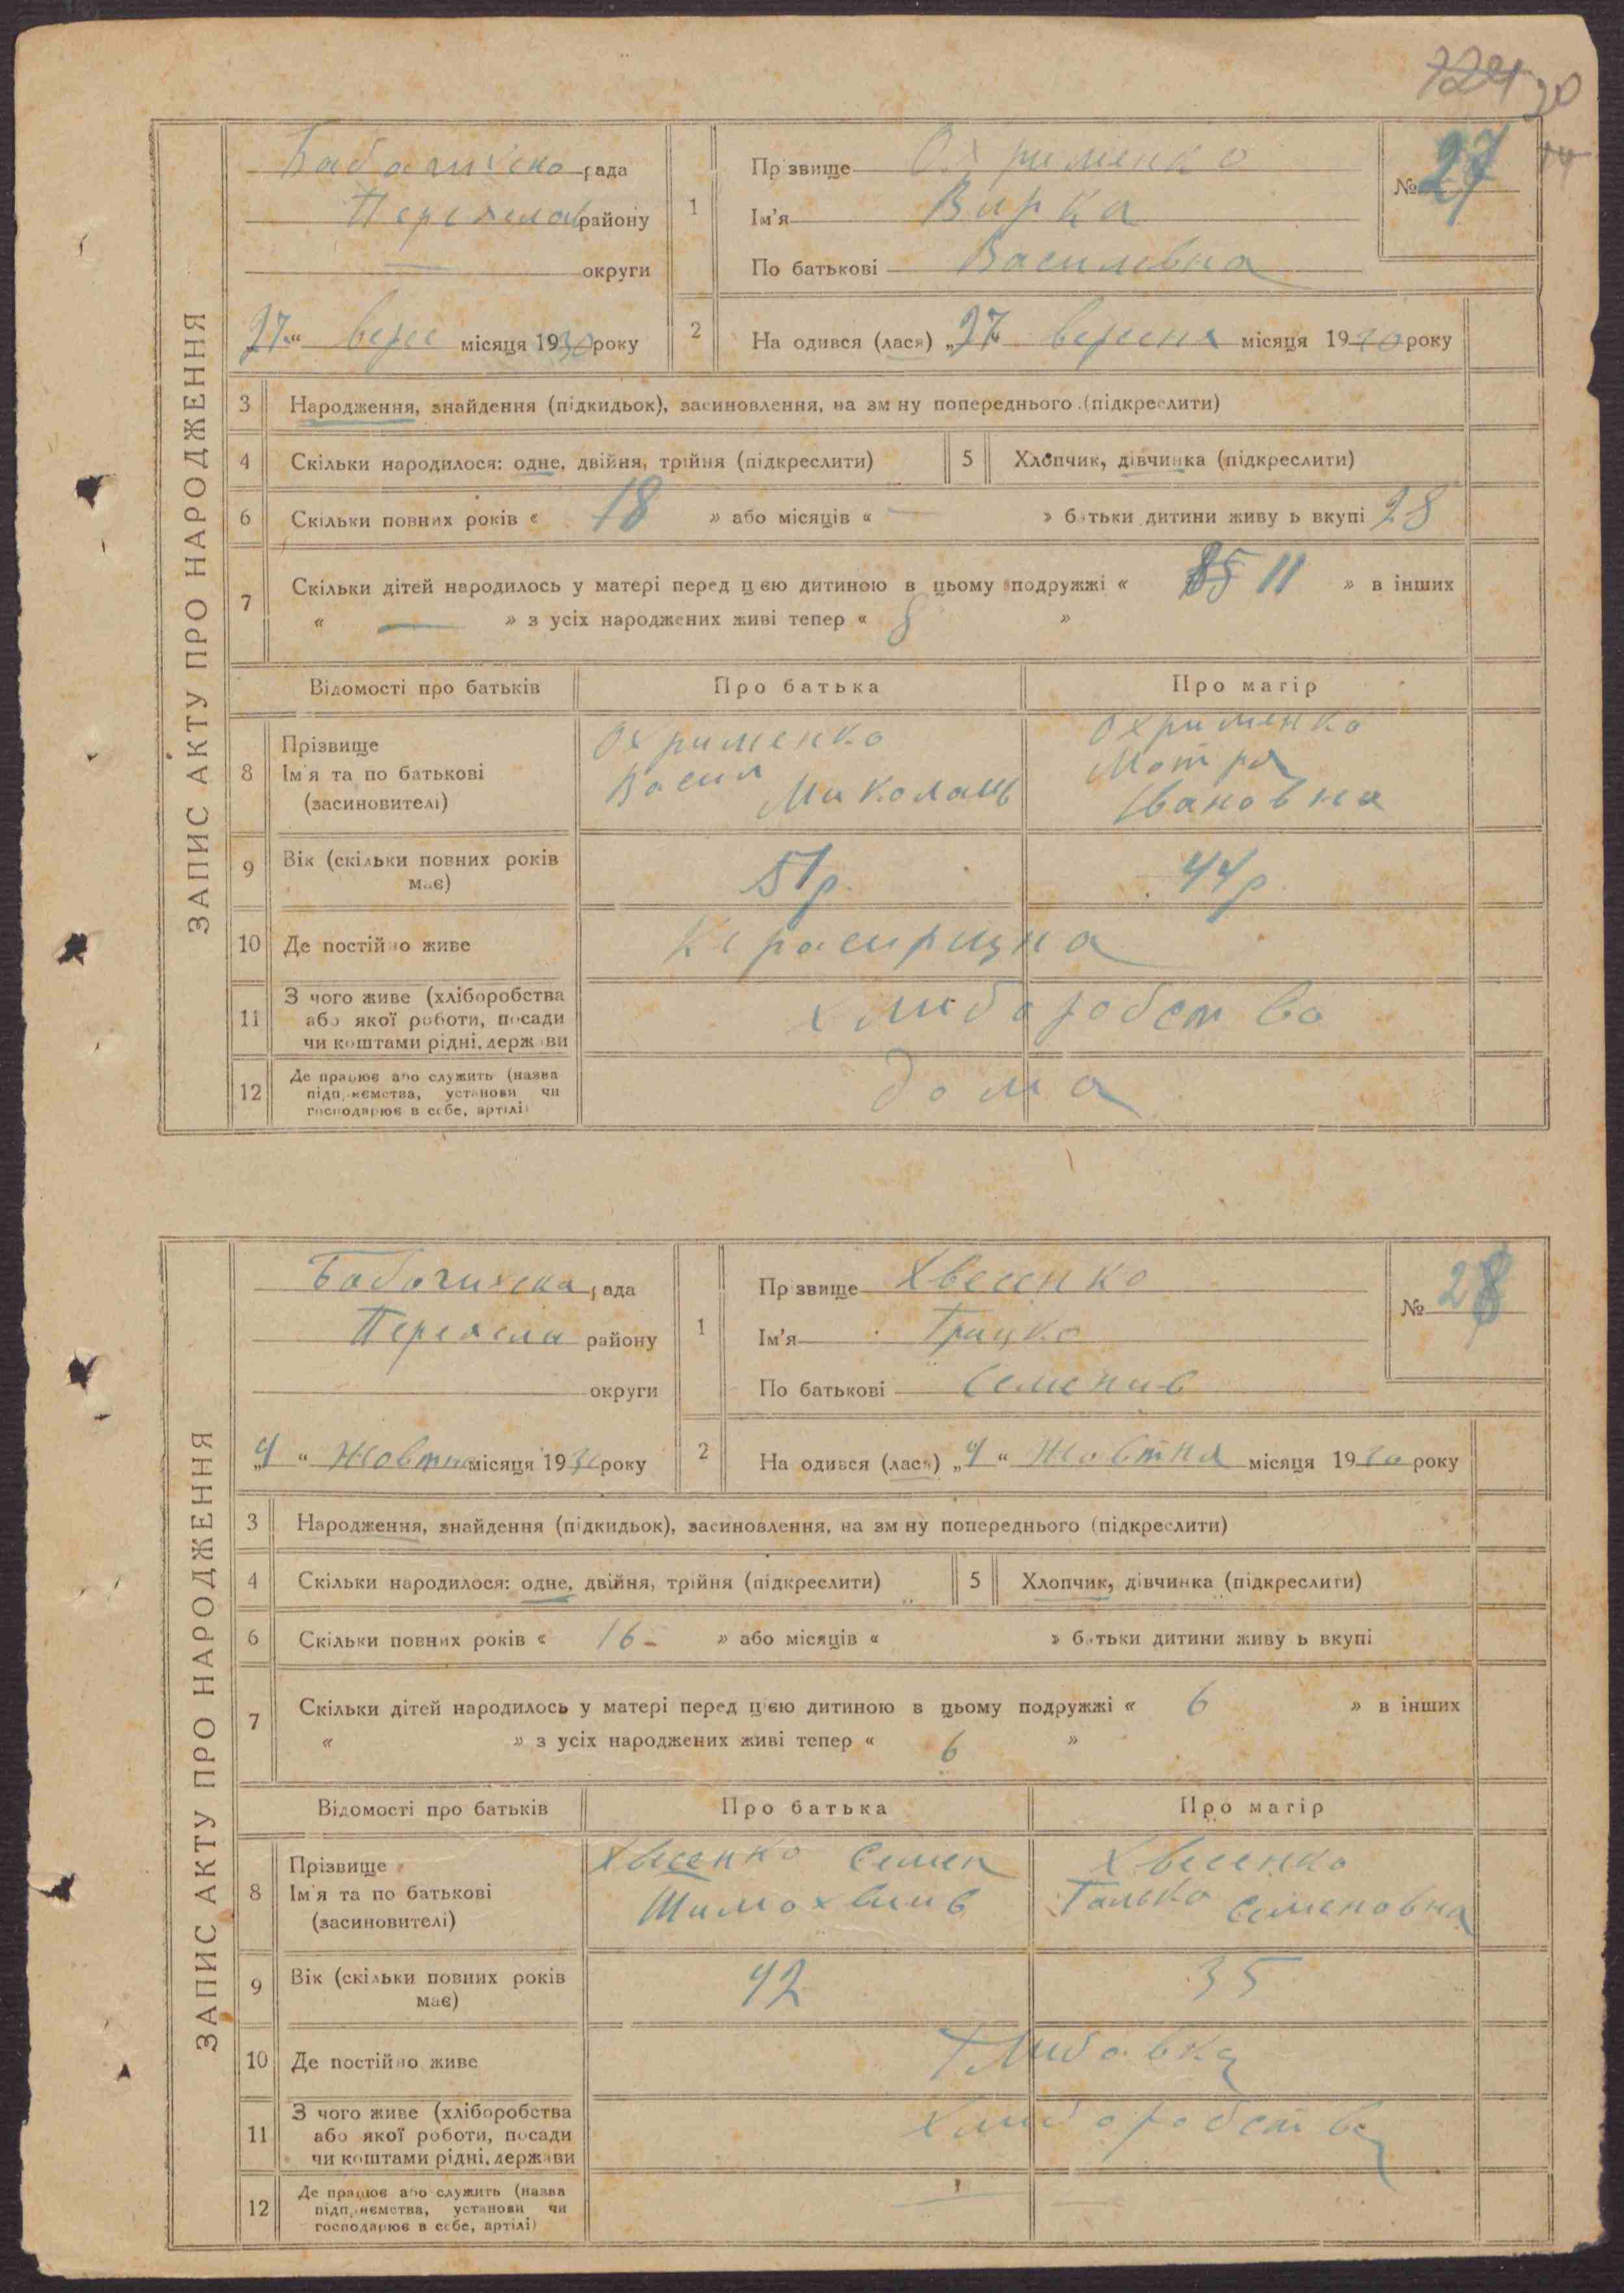 20
ЗАПИС АКТУ ПРО НАРОДЖЕННЯ
рада
Переяслав району
— округи
27 " верес місяця 1930 року
1 Прізвище Охрименко
Ім'я Вирка
По батькові Василевна
№ 27
2 На одився (лася) „27 вересня місяця 1930 року
3 Народження, знайдення (підкидьок), засиновлення, на зм ну попереднього (підкреслити)
4 Скільки народилося: одне, двійня, трійня (підкреслити)
5 Хлопчик, дівчинка (підкреслити)
6 Скільки повних років « 18 » або місяців « — » батьки дитини живу ь вкупі 28
7 Скільки дітей народилось у матері перед цією дитиною в цьому подружжі « 11 » в інших
« — » з усіх народжених живі тепер « 8 »
Відомості про батьків Про батька Про матір
8 Прізвище
Ім'я та по батькові
(засиновителі)
Охрименко
Васил Миколаїв
Охрименко
Мотря
Івановна
9 Вік (скільки повних років
має)
51 р. 44 р.
10 Де постійно живе
11 З чого живе (хліборобства
або якої роботи, посади
чи коштами рідні, держави
хлиборобство
12 Де працює або служить (назва
підприємства, установи чи
господарює в себе, артілі)
дома
ЗАПИС АКТУ ПРО НАРОДЖЕННЯ
рада
району
округи
„4 " Жовтня місяця 1930 року
1 Прізвище Хвесенко
Ім'я Грицко
По батькові Семенив
№ 28
2 На одився (лася) „4 " Жовтня місяця 1930 року
3 Народження, знайдення (підкидьок), засиновлення, на зм ну попереднього (підкреслити)
4 Скільки народилося: одне, двійня, трійня (підкреслити)
5 Хлопчик, дівчинка (підкреслити)
6 Скільки повних років « 16 - » або місяців « » батьки дитини живу ь вкупі
7 Скільки дітей народилось у матері перед цією дитиною в цьому подружжі « 6 » в інших
« » з усіх народжених живі тепер « 6 »
Відомості про батьків Про батька Про матір
8 Прізвище
Ім'я та по батькові
(засиновителі)
Хвесенко Семен
Хвесенко
Семеновна
9 Вік (скільки повних років
має)
42 35
10 Де постійно живе
11 З чого живе (хліборобства
або якої роботи, посади
чи коштами рідні, держави
хлиборобство
12 Де працює або служить (назва
підприємства, установи чи
господарює в себе, артілі)